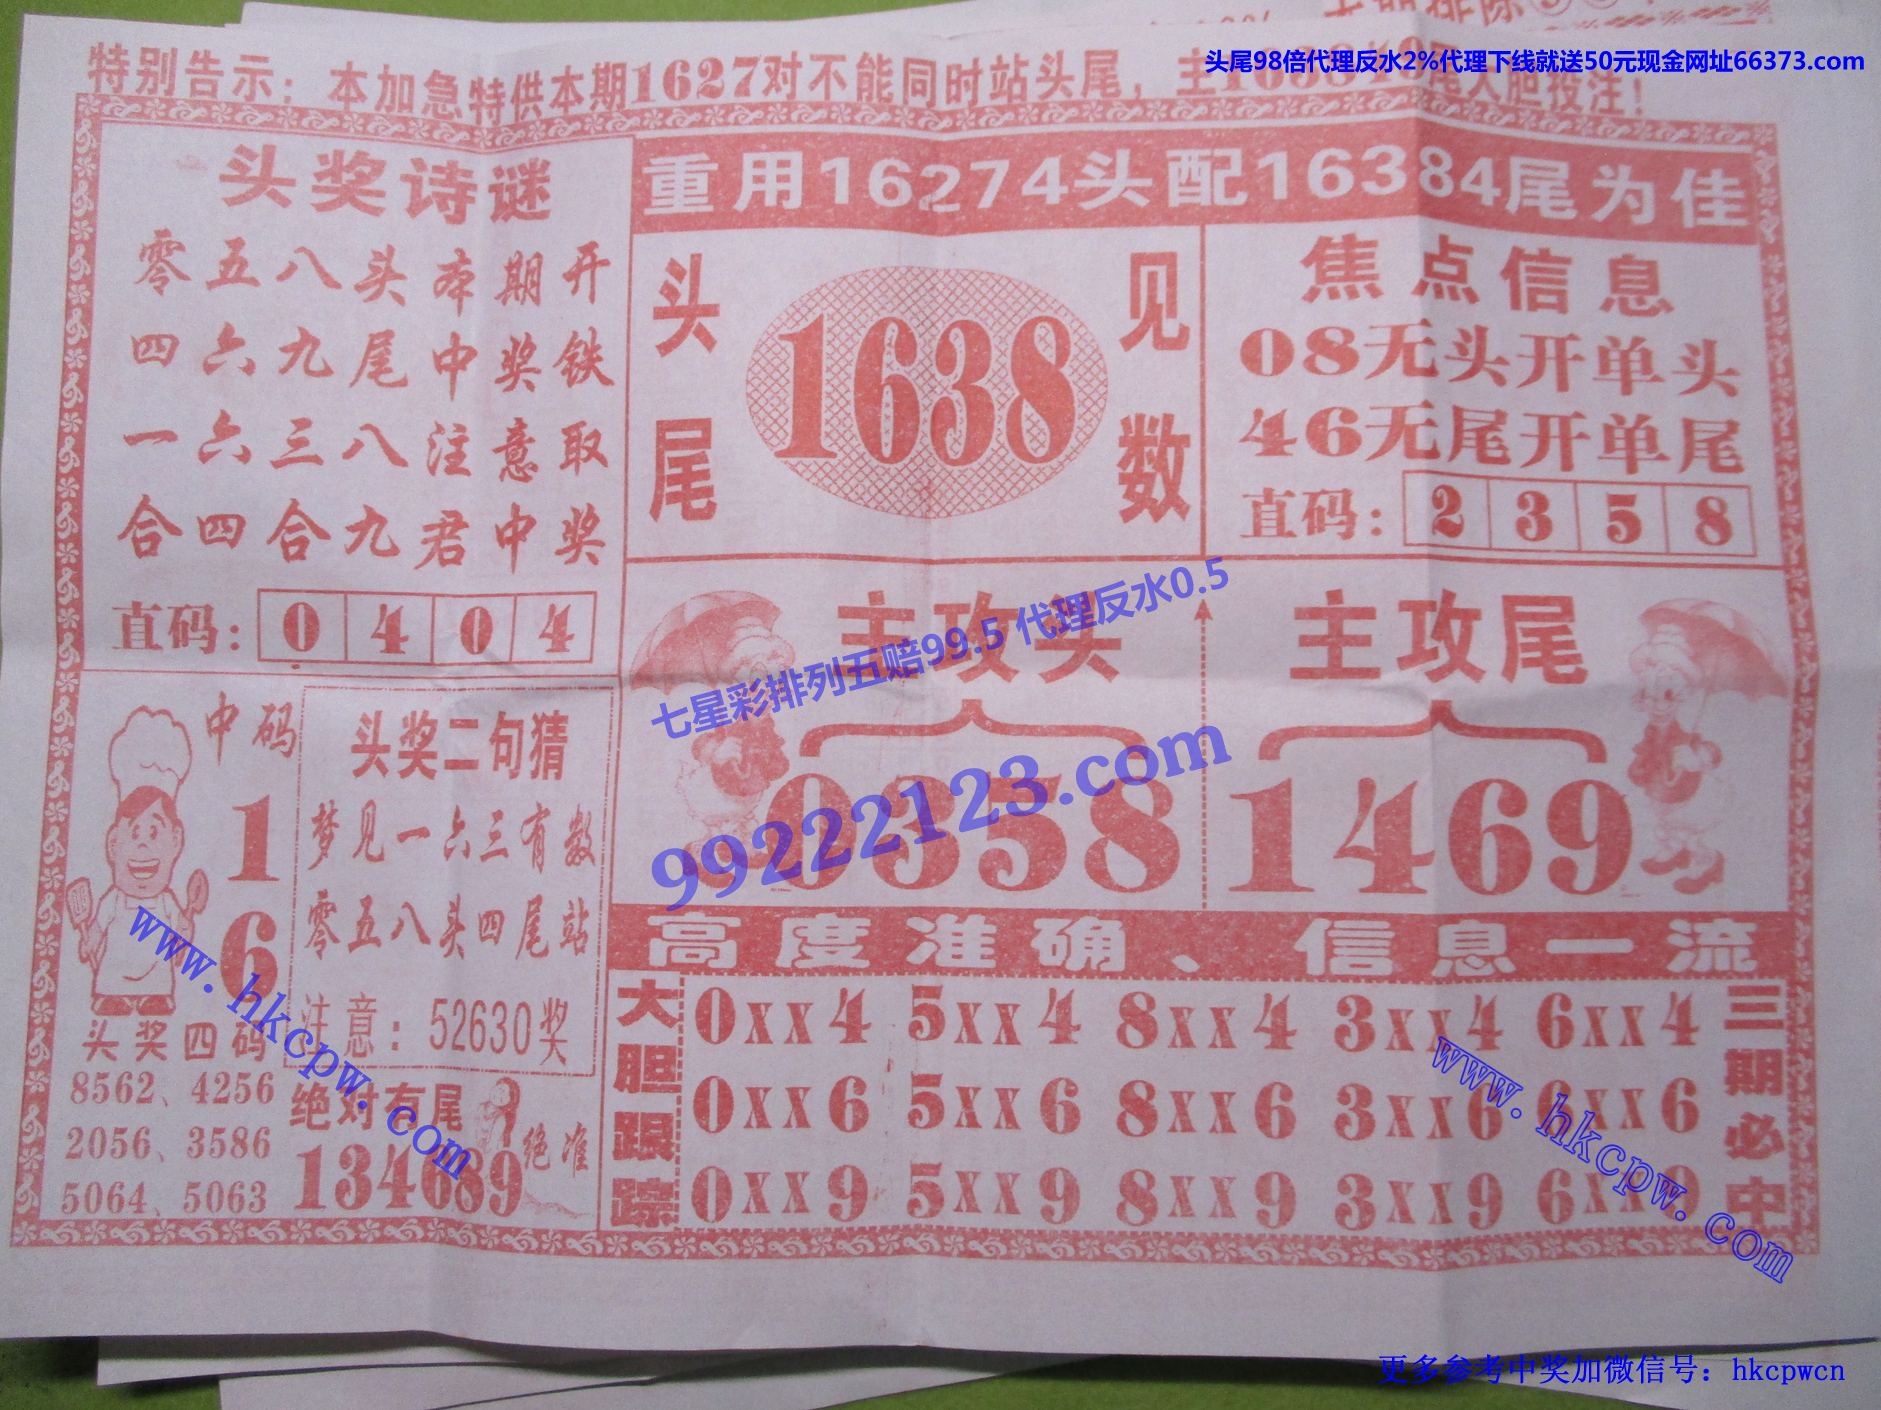 头尾98倍代理反水2%代理下线就送50元现金网址66373.com
特别告示：本加急特供本期1627对不能同时站头尾，主
大胆投注！
头奖诗谜
零五八头本期开
四六九尾中奖铁
一六三八注意取
合四合九君中奖
直码：0404
重用16274头配16384尾为佳
头尾
1638
见数
焦点信息
08无头开单头
46无尾开单尾
直码：2358
主攻头
0358
主攻尾
1469
七星彩排列五赔99.5 代理反水0.5
99222123.com
中码
1
6
头奖四码
8562、4256
2056、3586
5064、5063
头奖二句猜
梦见一六三有数
零五八头四尾站
注意：52630奖
绝对有尾
134689
绝准
高度准确、信息一流
大胆跟踪
0xx4 5xx4 8xx4 3xx4 6xx4
0xx6 5xx6 8xx6 3xx6 6xx6
0xx9 5xx9 8xx9 3xx9 6xx9
三期必中
www.hkcpw.com
www.hkcpw.com
更多参考中奖加微信号：hkcpwcn